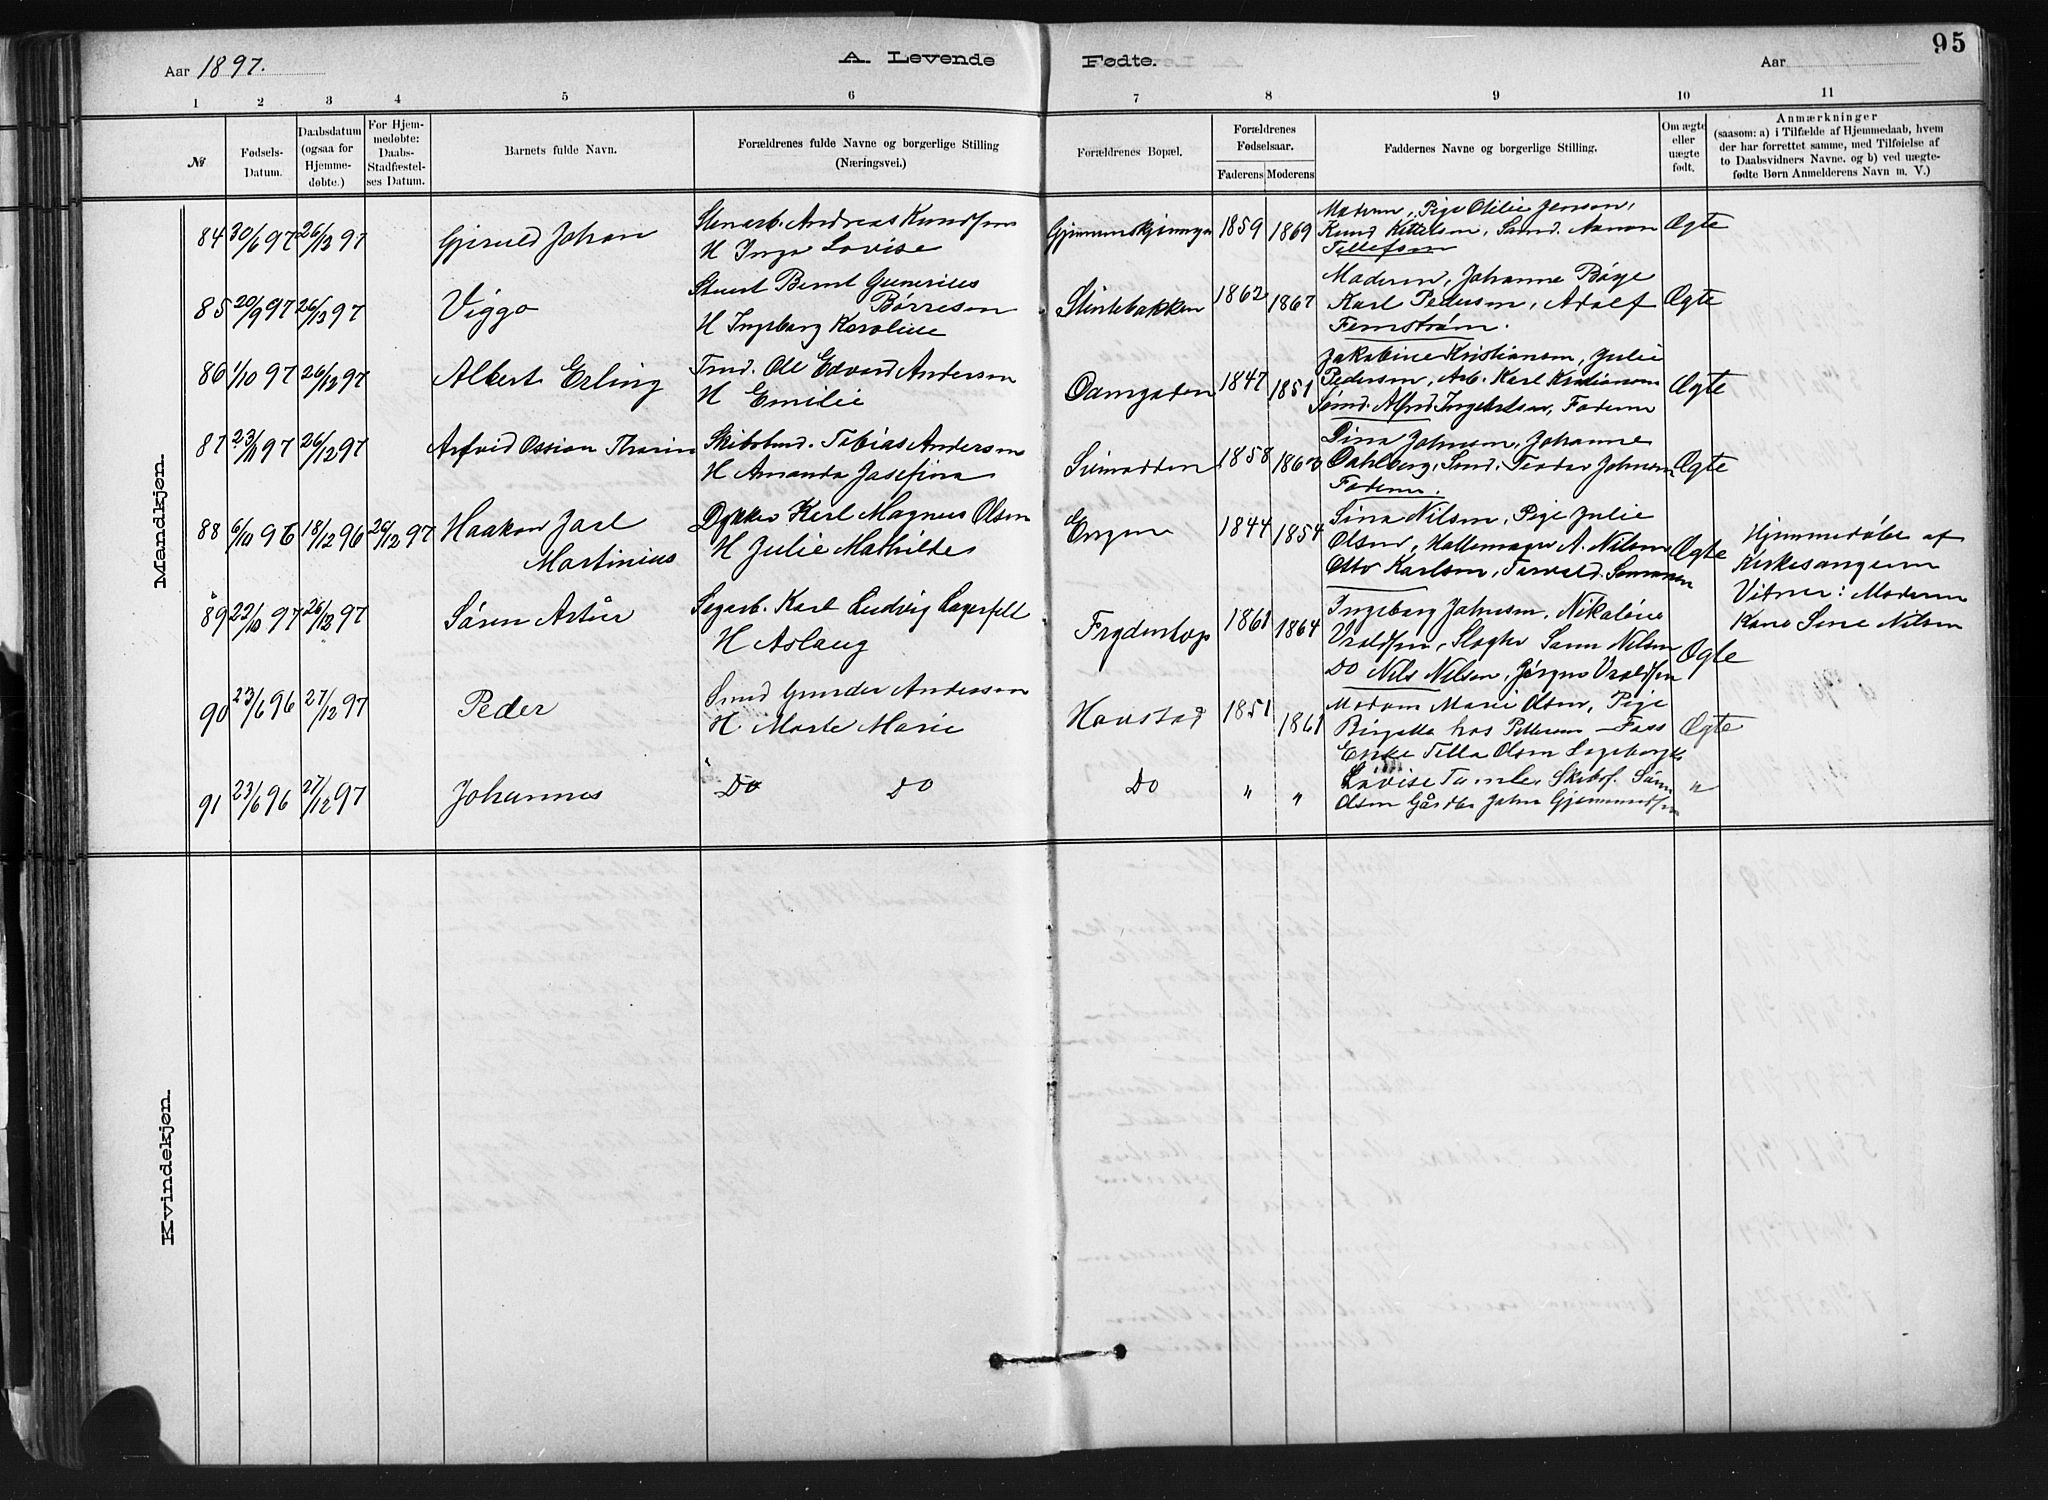 Aar 1897.
A. Levende Fødte.
Aar
95
1 2 3 4 5 6 7 8 9 10 11
№
Fødsels-Datum.
Daabsdatum (ogsaa for Hjemme-døbte.)
For Hjem-medøbte: Daabs-Stadfæstel-ses Datum.
Barnets fulde Navn.
Forældrenes fulde Navne og borgerlige Stilling (Næringsvei.)
Forældrenes Bopæl.
Forældrenes Fødselsaar.
Faderens Moderens
Faddernes Navne og borgerlige Stilling.
Om ægte eller uægte født.
Anmærkninger
(saasom: a) i Tilfælde af Hjemmedaab, hvem
der har forrettet samme, med Tilføielse af
to Daabsvidners Navne. og b) ved uægte-
fødte Børn Anmelderens Navn m. V.)
Mandkjøn.
84 30/6 97 26/12 97
Gjeruld Johan
Stenarb. Andreas Knudsen
H Inga Lovise
1859 1869
Moderen, Pige Otilie Jensen,
Knud Kittelsen, Smd. Aanon
Tellefsen
Ægte
85 20/9 97 26/12 97
Viggo
Stuert Bernt Gunerius
Børresen
H Ingeborg Karoline
Slintebakken
1862 1867
Moderen, Johanne Bøye
Karl Pedersen, Adolf
Femstrøm.
Ægte
86 1/10 97 26/12 97
Albert Erling
Tmd. Ole Edvard Andersen
H Emilie
1847 1851
Jakobine Kristiansen, Julie
Pedersen, Arb. Karl Kristiansen
Sømd. Alfred Ingebretsen, Faderen
Ægte
87 23/11 97 26/12 97
Arfvid Ossian Thorin
Skibstmd. Tobias Andersen
H Amanda Josefina
Sveinodden
1858 1863
Dina Johnsen, Johanne
Dahlberg, Smd. Teodor Johnsen
Faderen.
Ægte
88 6/10 96 18/12 96 26/12 97
Haakon Jarl
Martinius
Dykker Karl Magnus Olsen
H Julie Mathilde
Engene
1844 1854
Sina Nilsen, Pige Julie
Olsen, A. Nilsen
Otto Karlsen,
Ægte
Hjemmedøbt af
Kirkesangeren
Vitner: Moderen
Kone Sine Nilsen
89 22/10 97 26/12 97
Søren Artür
Sagarb. Karl Ludvig Lagerfelt
H Aslaug
Frydentop
1861 1864
Ingeborg Johnsen, Nikoline
Vroldsen, Slagter Sam Nilsen
Do Nils Nilsen, Jørgen Vroldsen
Ægte
90 23/6 96 27/12 97
Peder
Smd Gunder Andersen
H. Marte Marie
Havstad
1851 1861
Madam Marie Olsen, Pige
Birgitte hos Pettersen – Foss
Enke Tella Olsen
Ægte
91 23/6 96 27/12 97
Johannes
Do Do
Do
" "
Lovise Skibsf. Søren
Olsen John Gjermundsen
"
Kvindekjøn.